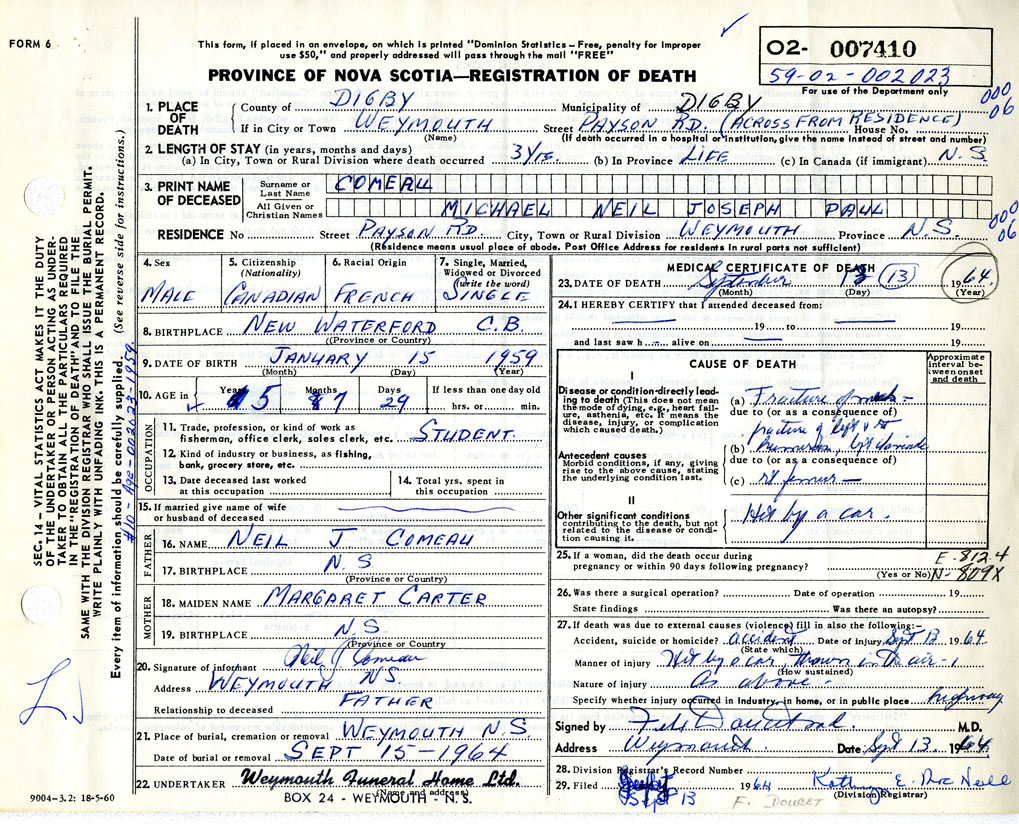 FORM 6
This form, if placed in an envelope, on which is printed "Dominion Statistics – Free, penalty for improper
use $50," and properly addressed will pass through the mail "FREE"
PROVINCE OF NOVA SCOTIA—REGISTRATION OF DEATH
02- 007410
59-02-002023
For use of the Department only
000
06
1. PLACE OF DEATH
County of DIGBY Municipality of DIGBY
If in City or Town WEYMOUTH Street PAYSON RD. (ACROSS FROM RESIDENCE) House No.
(Name) (If death occurred in a hospital or institution, give the name instead of street and number)
2. LENGTH OF STAY (in years, months and days)
(a) In City, Town or Rural Division where death occurred 3 yrs. (b) In Province LIFE (c) In Canada (if immigrant) N.S.
3. PRINT NAME OF DECEASED
Surname or Last Name COMEAU
All Given or Christian Names MICHAEL NEIL JOSEPH PAUL
000
06
RESIDENCE No Street PAYSON RD. City, Town or Rural Division WEYMOUTH Province N.S.
(Residence means usual place of abode. Post Office Address for residents in rural parts not sufficient)
4. Sex
MALE
5. Citizenship (Nationality)
CANADIAN
6. Racial Origin
FRENCH
7. Single, Married, Widowed or Divorced (write the word)
SINGLE
8. BIRTHPLACE NEW WATERFORD C.B.
(Province or Country)
9. DATE OF BIRTH JANUARY 15 1959
(Month) (Day) (Year)
10. AGE in Years 5 Months 7 Days 29 If less than one day old hrs. or min.
OCCUPATION
11. Trade, profession, or kind of work as
fisherman, office clerk, sales clerk, etc. STUDENT.
12. Kind of industry or business, as fishing,
bank, grocery store, etc.
13. Date deceased last worked
at this occupation
14. Total yrs. spent in
this occupation
15. If married give name of wife
or husband of deceased
FATHER
16. NAME NEIL J COMEAU
17. BIRTHPLACE N.S
(Province or Country)
MOTHER
18. MAIDEN NAME MARGARET CARTER
19. BIRTHPLACE N.S.
(Province or Country
20. Signature of informant Neil J Comeau
Address WEYMOUTH N.S.
Relationship to deceased FATHER
21. Place of burial, cremation or removal WEYMOUTH N.S.
Date of burial or removal SEPT 15-1964
22. UNDERTAKER Weymouth Funeral Home Ltd.
(Name and address)
BOX 24 - WEYMOUTH - N.S.
9004-3.2: 18-5-60
MEDICAL CERTIFICATE OF DEATH
23. DATE OF DEATH September 13 (13) 1964
(Month) (Day) (Year)
24. I HEREBY CERTIFY that I attended deceased from:
19 to 19
and last saw h alive on 19
CAUSE OF DEATH
Approximate interval between onset and death
I
Disease or condition directly leading to death (This does not mean the mode of dying, e.g., heart failure, asthenia, etc. It means the disease, injury, or complication which caused death.)
(a) Fracture of neck -
due to (or as a consequence of)
fracture of left & rt
(b) humerus, left clavicle
due to (or as a consequence of)
(c) rt femur -
Antecedent causes
Morbid conditions, if any, giving rise to the above cause, stating the underlying condition last.
II
Other significant conditions
contributing to the death, but not related to the disease or condition causing it.
Hit by a car.
25. If a woman, did the death occur during
pregnancy or within 90 days following pregnancy?
(Yes or No)
E. 812.4
N- 809X
26. Was there a surgical operation? Date of operation 19
State findings Was there an autopsy?
27. If death was due to external causes (violence) fill in also the following:-
Accident, suicide or homicide? accident Date of injury Sept 13 1964
(State which)
Manner of injury Hit by a car, thrown in the air -
(How sustained)
Nature of injury As above -
Specify whether injury occurred in industry, in home, or in public place highway
Signed by M.D.
Address Weymouth. Date Sept 13. 1964.
28. Division Registrar's Record Number
29. Filed Sept 13 1964 E. Mac Neill
(Division Registrar)
F. DOUCET
SEC. 14 – VITAL STATISTICS ACT MAKES IT THE DUTY
OF THE UNDERTAKER OR PERSON ACTING AS UNDER-
TAKER TO OBTAIN ALL THE PARTICULARS REQUIRED
IN THE "REGISTRATION OF DEATH" AND TO FILE THE
SAME WITH THE DIVISION REGISTRAR WHO SHALL ISSUE THE BURIAL PERMIT.
WRITE PLAINLY WITH UNFADING INK. THIS IS A PERMANENT RECORD.
Every item of information should be carefully supplied. (See reverse side for instructions.)
#10 - Age - 002023-1959